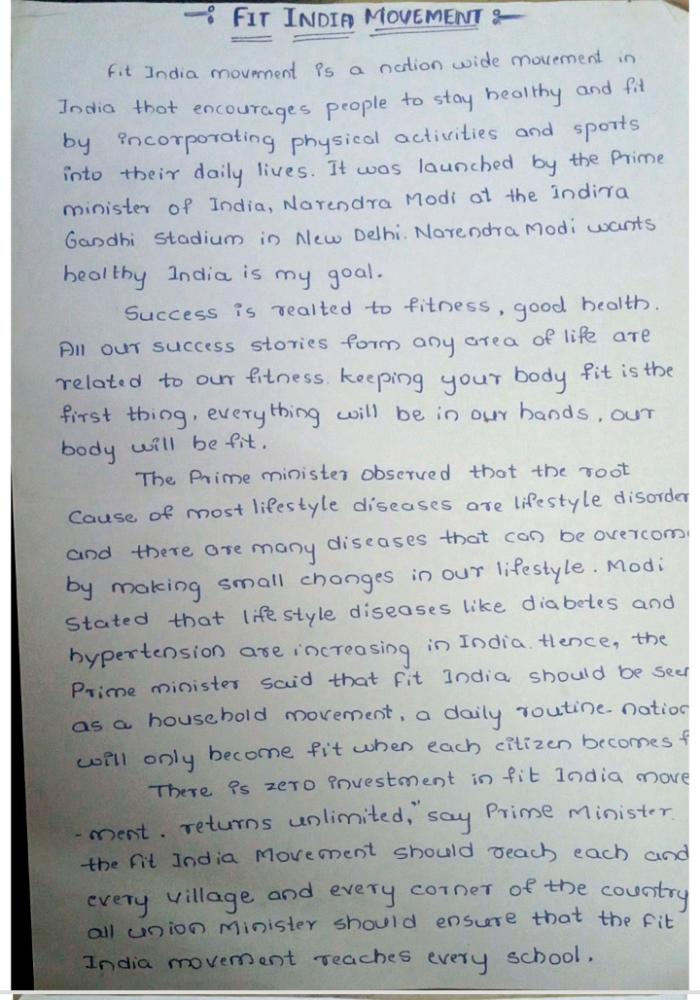 -: FIT INDIA MOVEMENT :-
Fit India movement is a nation wide movement in
India that encourages people to stay healthy and fit
by incorporating physical activities and sports
into their daily lives. It was launched by the Prime
minister of India, Narendra Modi at the Indira
Gandhi Stadium in New Delhi. Narendra Modi wants
healthy India is my goal.
Success is realted to fitness, good health.
All our success stories form any area of life are
related to our fitness. keeping your body fit is the
first thing, everything will be in our hands, our
body will be fit.
The Prime minister observed that the root
Cause of most lifestyle diseases are lifestyle disorder
and there are many diseases that can be overcom
by making small changes in our lifestyle. Modi
Stated that life style diseases like diabetes and
hypertension are increasing in India. Hence, the
Prime minister said that fit India should be seen
as a household movement, a daily routine. nation
will only become fit when each citizen becomes f
There is zero investment in fit India move
-ment. returns unlimited," say Prime Minister.
the Fit India Movement should reach each and
every village and every corner of the country
all union Minister should ensure that the Fit
India movement reaches every school.